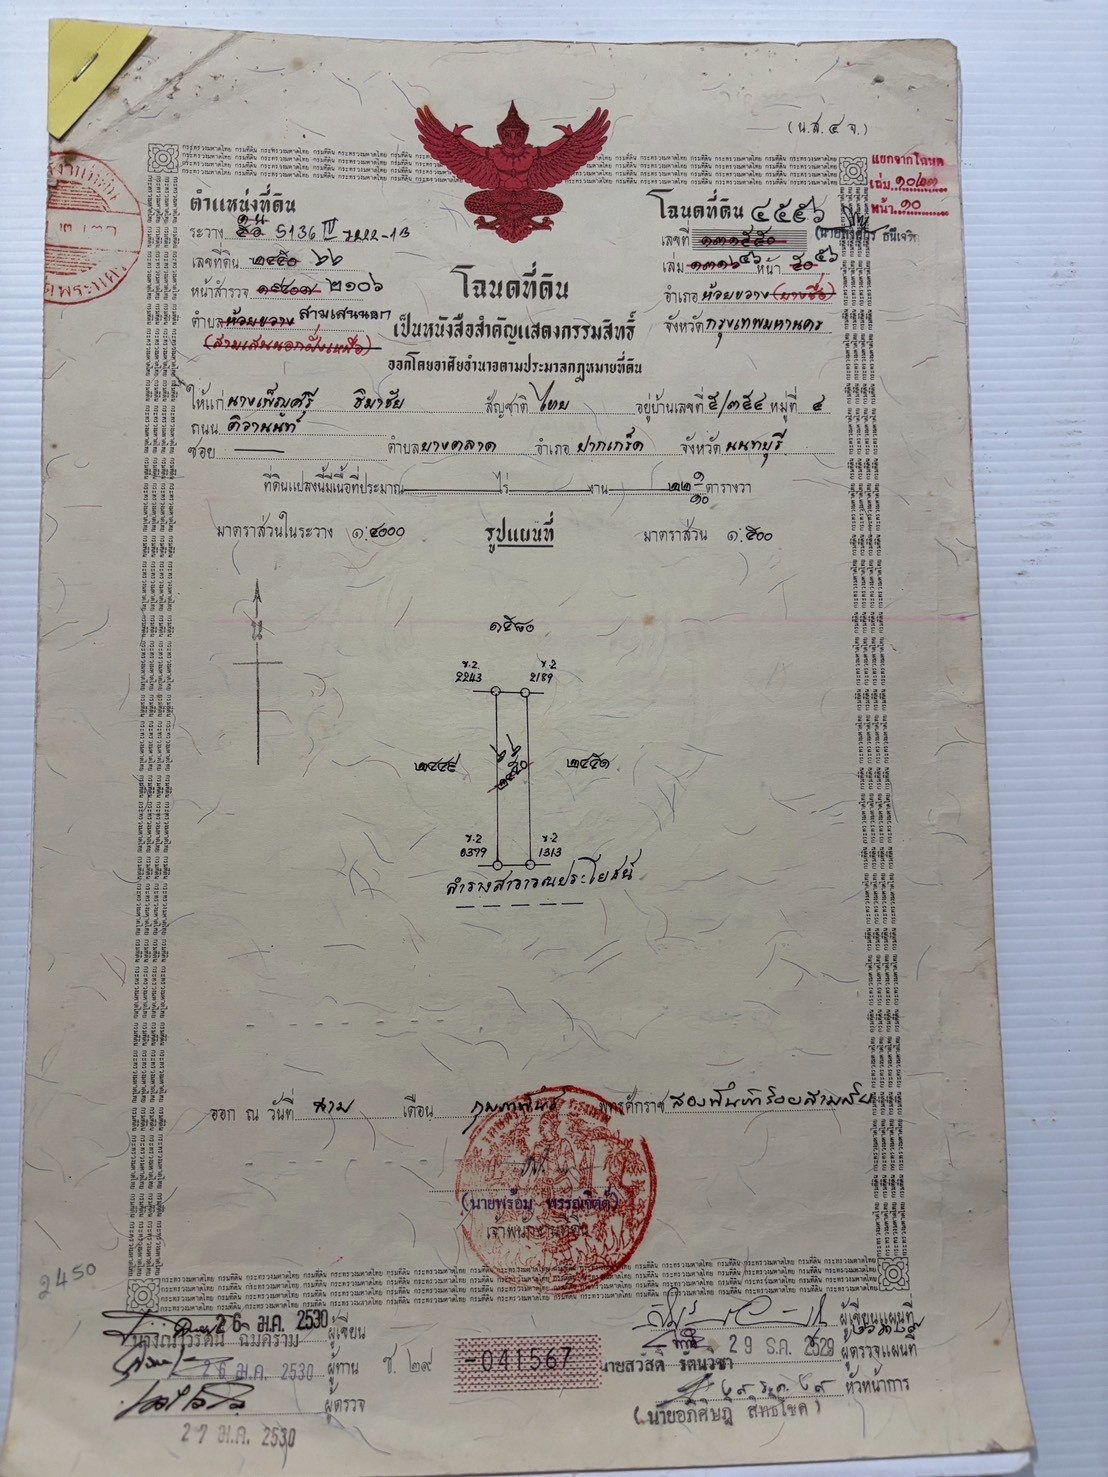 (น.ส.๔ จ.)
แยกจากโฉนด
เล่ม ๑๐๒๓
หน้า ๑๐
ตำแหน่งที่ดิน
ระวาง S136 IV 7222-13
เลขที่ดิน ๒๔๕๐ ๖๖
หน้าสำรวจ ๒๑๐๖
ตำบล ห้วยขวาง สามเสนนอก
(สามเสนนอกฝั่งเหนือ)
โฉนดที่ดิน ๔๕๕๖
เลขที่ ๑๓๑๕๕๐
เล่ม ๑๓๑๖ ๔๖ หน้า ๕๐ ๕๖
อำเภอ ห้วยขวาง (บางซื่อ)
จังหวัด กรุงเทพมหานคร
โฉนดที่ดิน
เป็นหนังสือสำคัญแสดงกรรมสิทธิ์
ออกโดยอาศัยอำนาจตามประมวลกฎหมายที่ดิน
ให้แก่ นางเพ็ญศรี ชิมาชัย สัญชาติ ไทย อยู่บ้านเลขที่ ๕/๓๕๔ หมู่ที่ ๔
ถนน ติวานนท์
ซอย — ตำบล บางตลาด อำเภอ ปากเกร็ด จังหวัด นนทบุรี
ที่ดินแปลงนี้มีเนื้อที่ประมาณ ไร่ งาน ๒๒ ๑/๑๐ ตารางวา
มาตราส่วนในระวาง ๑:๔๐๐๐ รูปแผนที่ มาตราส่วน ๑:๕๐๐
น
๑๕๘๐
ข.2 ข.2
2243 2189
๒๔๔๙ ๖๖ ๒๔๕๐ ๒๔๕๑
ข.2 ข.2
0379 1313
ลำรางสาธารณประโยชน์
ออก ณ วันที่ สาม เดือน กุมภาพันธ์ พุทธศักราช สองพันห้าร้อยสามสิบ
(นายพร้อม พรรณจิตต์)
เจ้าพนักงานที่ดิน
2450
26 ม.ค. 2530 ผู้เขียน
26 ม.ค. 2530 ผู้ทาน
ผู้ตรวจ
27 ม.ค. 2530
ช. ๒๙
-041567
ผู้เขียนแผนที่
29 ธ.ค. 2529 ผู้ตรวจแผนที่
นายสวัสดิ์ รัตนวชา
หัวหน้าการ
(นายอภิศิษฎิ์ สิทธิโชค)